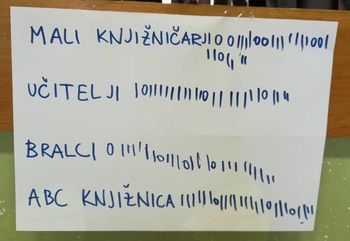 MALI KNJIŽNIČARJI
UČITELJI
BRALCI
ABC KNJIŽNICA